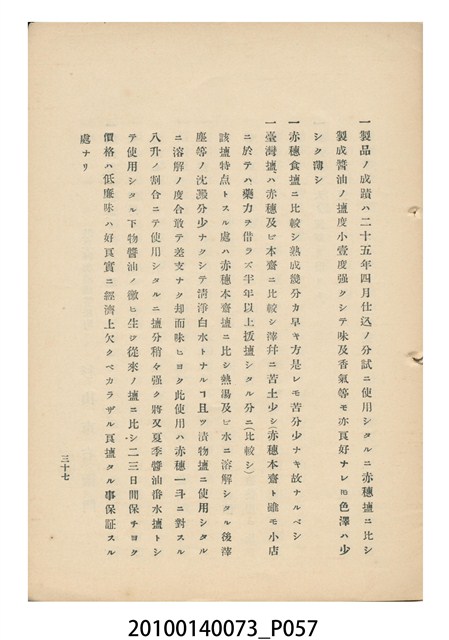 一製品ノ成蹟ハ二十五年四月仕込ノ分試ニ使用シタルニ赤穗塩ニ比シ
製成醬油ノ塩度小壹度强クシテ味及香氣等モ亦良好ナレㇳモ色澤ハ少
シク薄シ
一赤穗食塩ニ比較シ熟成幾分カ早キ方是レモ苦分少ナキ故ナルベシ
一臺灣塩ハ赤穗及ビ本齋ニ比較シ滓幷ニ苦土少シ(赤穗本齋ト雖モ小店
ニ於テハ藥力ヲ借ラズ半年以上拔塩シタル分ニ(比較シ)
該塩特点トスル處ハ赤穗本齋塩ニ比シ熱湯及ビ水ニ溶解シタル後滓
塵等ノ沈澱分少ナクシテ淸淨白水トナルヿ且ツ漬物塩ニ使用シタル
ニ溶解ノ度合敢テ差支ナク却而味ヒヨク此使用ハ赤穗一斗ニ對スル
八升ノ割合ニテ使用シタルニ塩分稍々强ク將又夏季醬油番水塩トシ
テ使用シタル下物醬油ノ黴ヒ生ヲ從來ノ塩ニ比シ二三日間保チヨク
價格ハ低廉味ハ好良實ニ經濟上欠クベカラザル良塩タル事保証スル
處ナリ
三十七
20100140073_P057